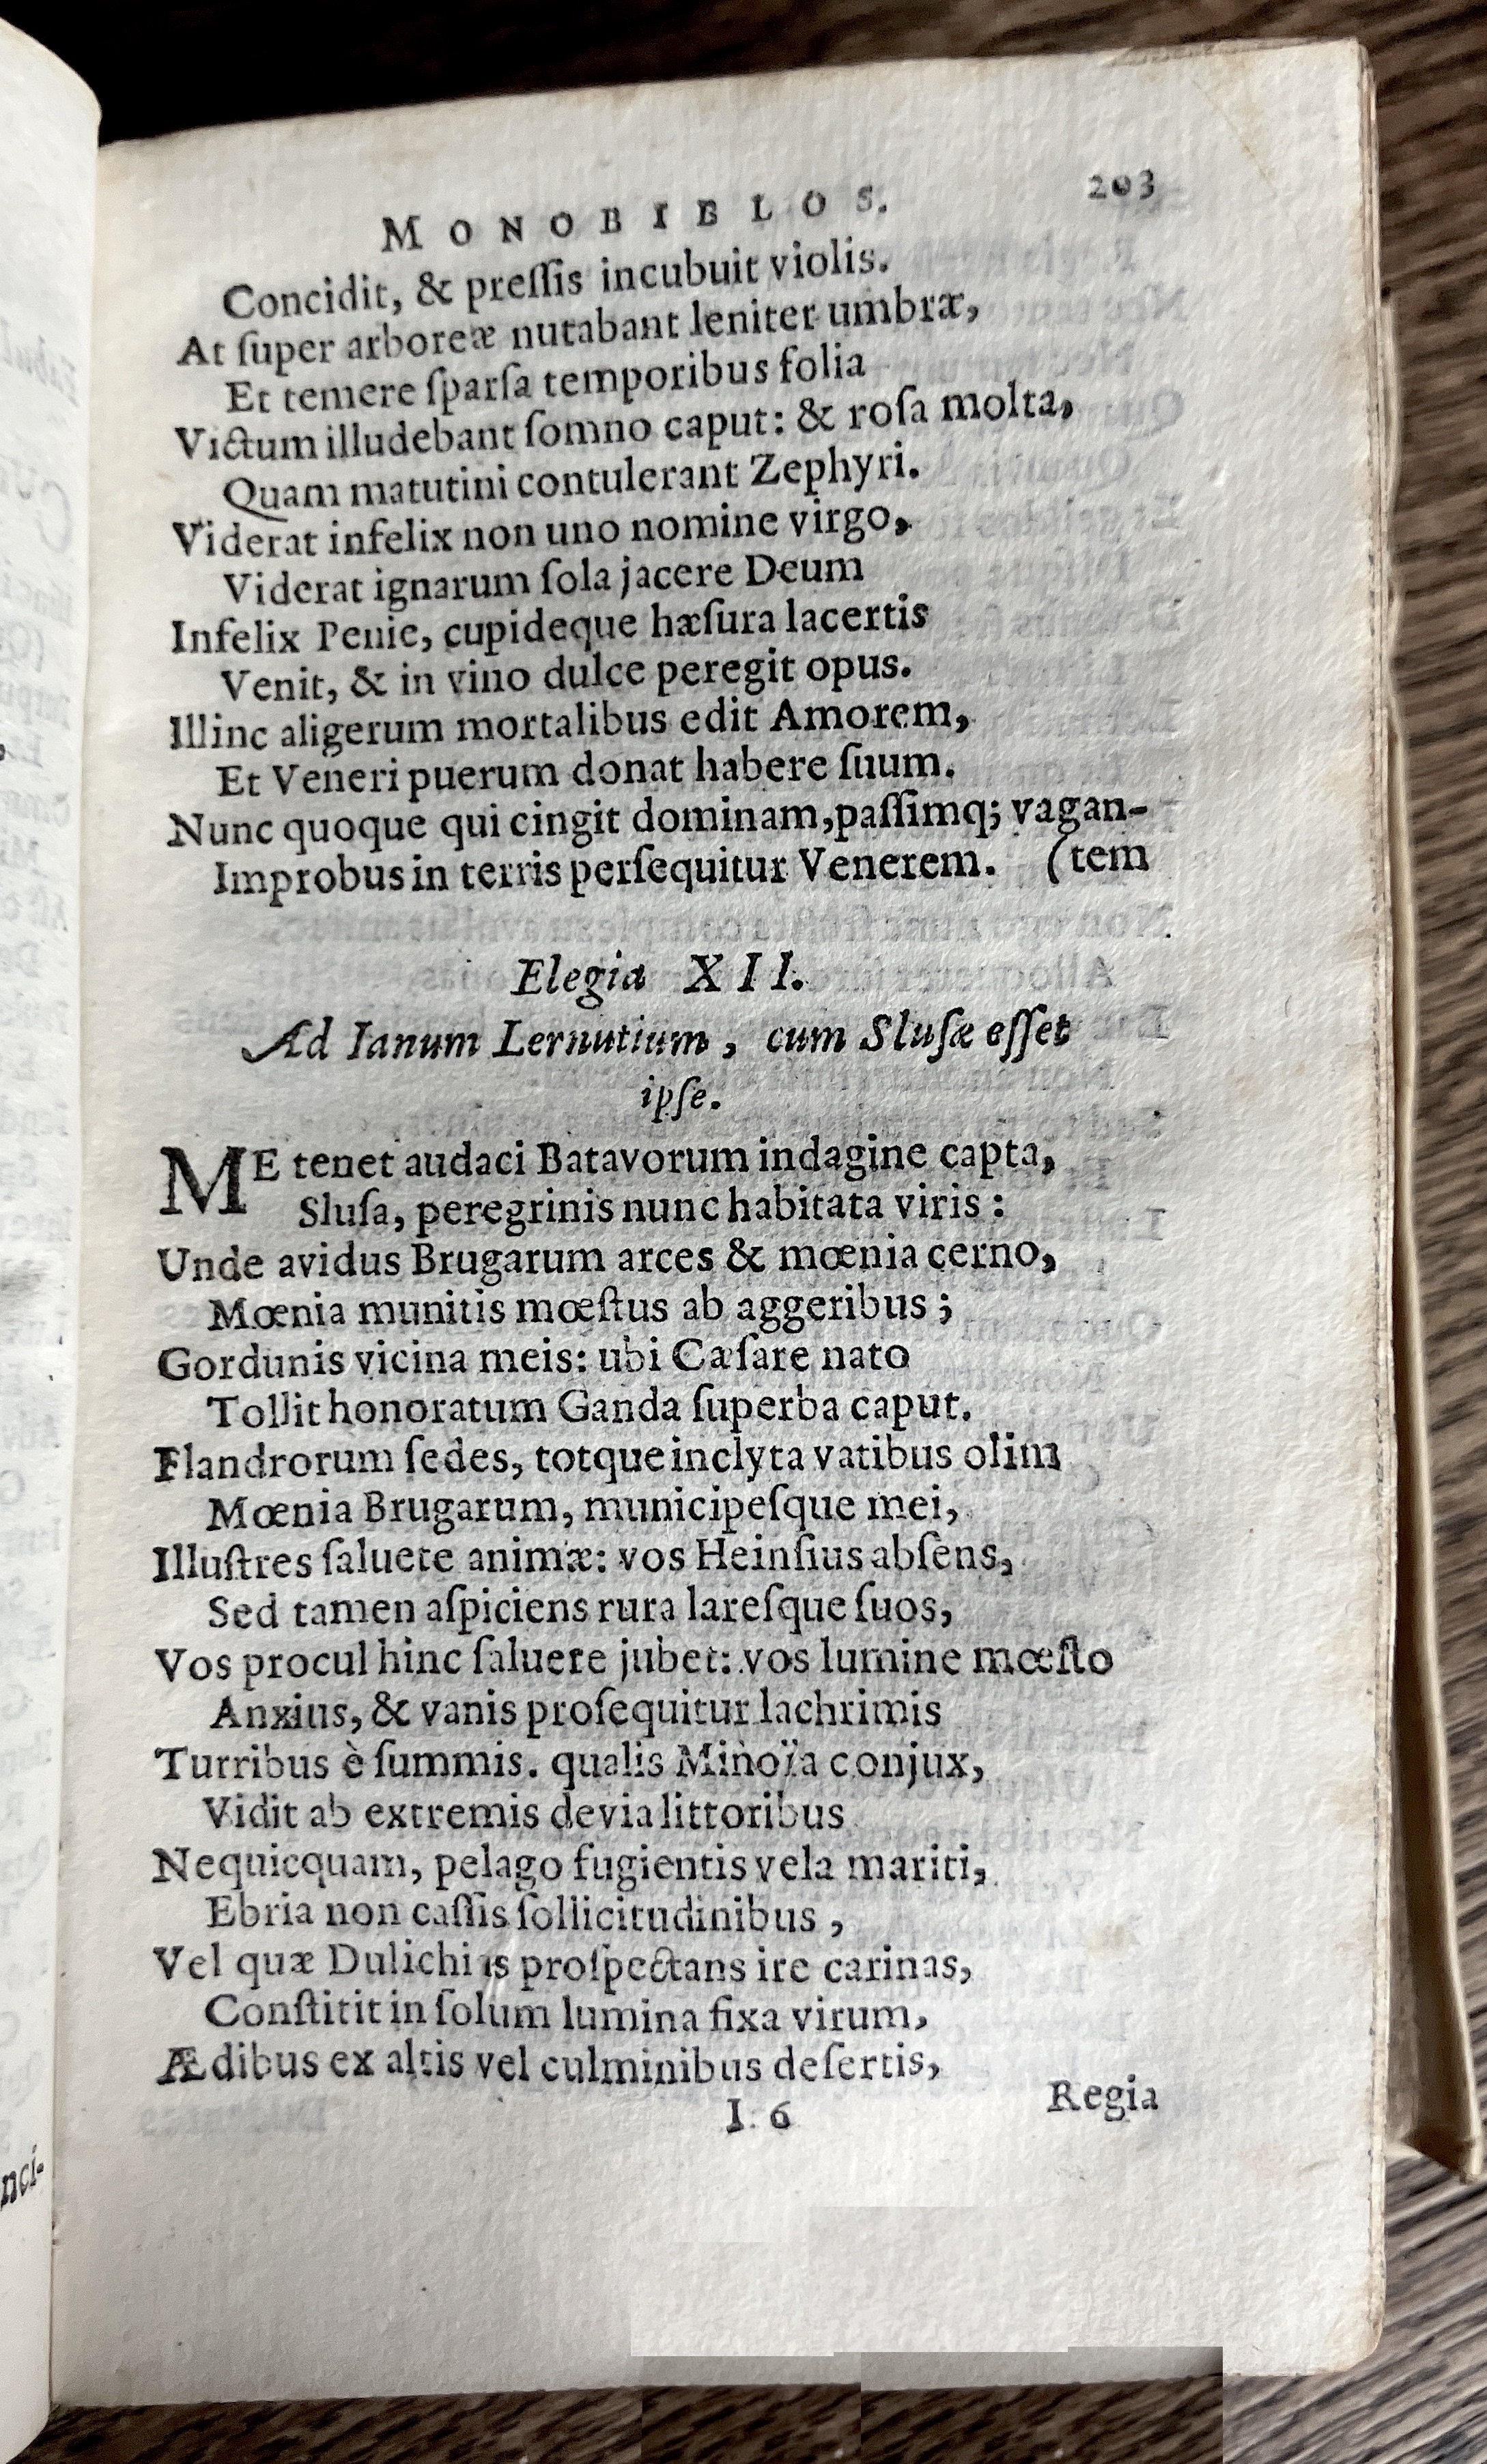 MONOBIBLOS. 203
Concidit, & preſſis incubuit violis.
At ſuper arboreæ nutabant leniter umbræ,
Et temere ſparſa temporibus folia
Victum illudebant ſomno caput: & roſa molta,
Quam matutini contulerant Zephyri.
Viderat infelix non uno nomine virgo,
Viderat ignarum ſola jacere Deum
Infelix Penie, cupideque hæſura lacertis
Venit, & in vino dulce peregit opus.
Illinc aligerum mortalibus edit Amorem,
Et Veneri puerum donat habere ſuum.
Nunc quoque qui cingit dominam, paſſimq; vagan-
Improbus in terris perſequitur Venerem. (tem
Elegia XII.
Ad Ianum Lernutium, cum Sluſæ eſſet
ipſe.
ME tenet audaci Batavorum indagine capta,
Sluſa, peregrinis nunc habitata viris:
Unde avidus Brugarum arces & mœnia cerno,
Mœnia munitis mœſtus ab aggeribus;
Gordunis vicina meis: ubi Cæſare nato
Tollit honoratum Ganda ſuperba caput.
Flandrorum ſedes, totque inclyta vatibus olim
Mœnia Brugarum, municipeſque mei,
Illuſtres ſaluete animæ: vos Heinſius abſens,
Sed tamen aſpiciens rura lareſque ſuos,
Vos procul hinc ſaluere jubet: vos lumine mœſto
Anxius, & vanis proſequitur lachrimis
Turribus è ſummis. qualis Minoïa conjux,
Vidit ab extremis devia littoribus
Nequicquam, pelago fugientis vela mariti,
Ebria non caſſis ſollicitudinibus,
Vel quæ Dulichiis proſpectans ire carinas,
Conſtitit in ſolum lumina fixa virum,
Ædibus ex altis vel culminibus deſertis,
I 6 Regia
nci-